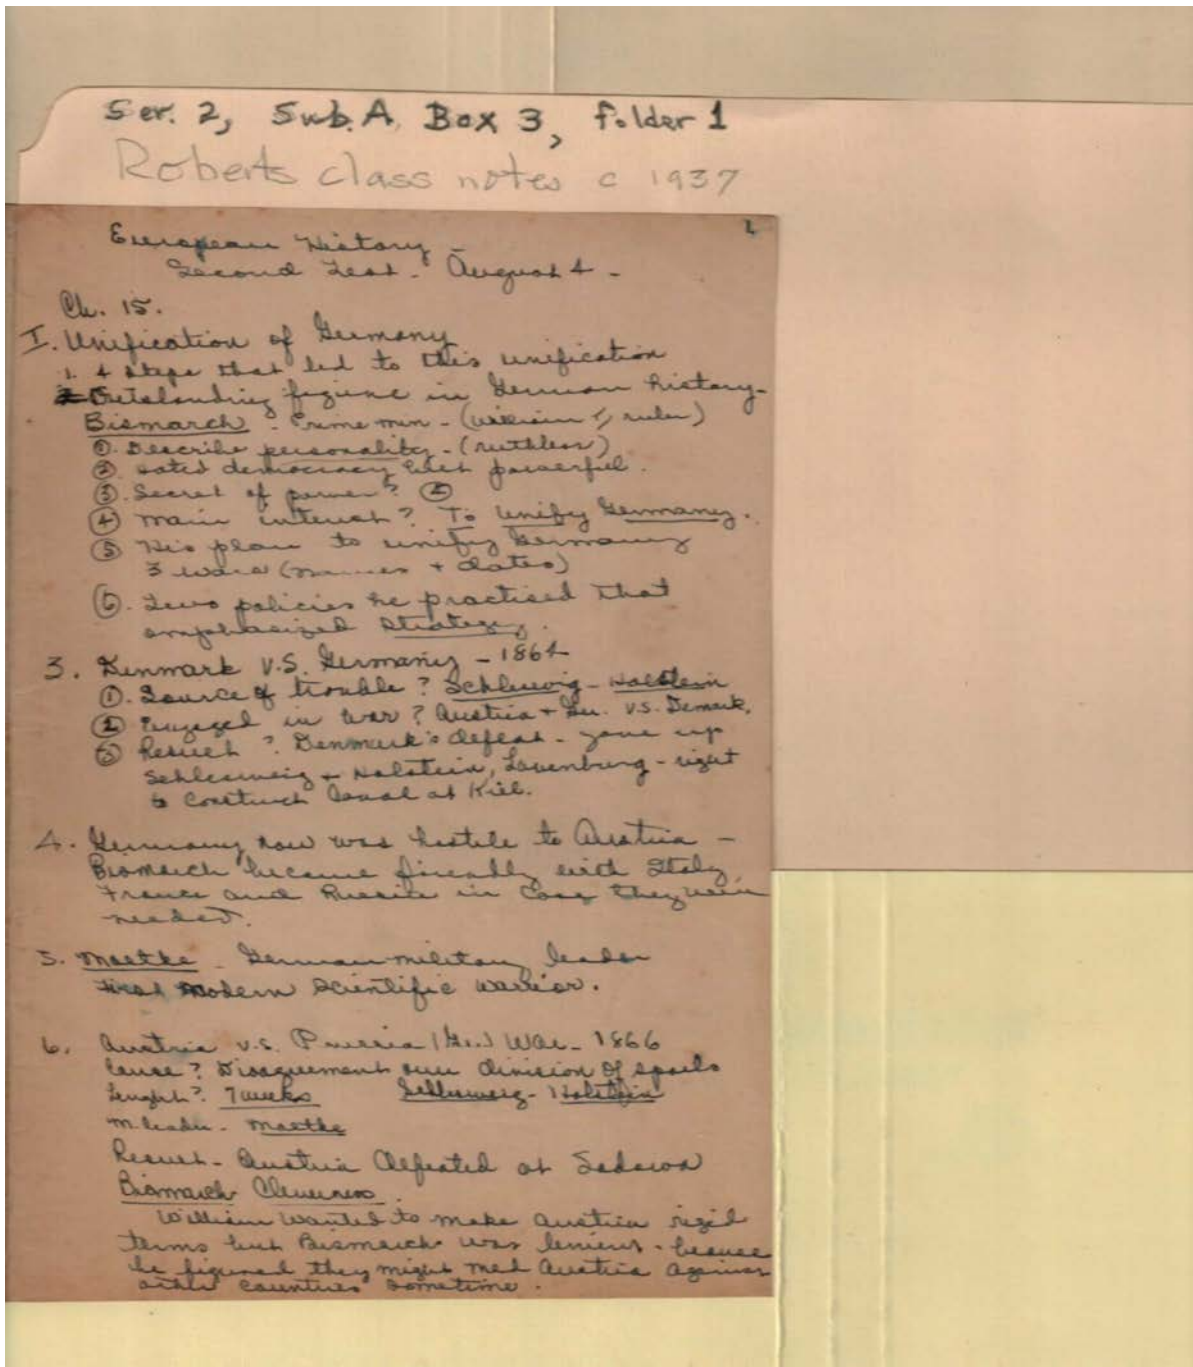 Ser. 2, Sub. A Box 3, folder 1
Roberts class notes c 1937
European History -
Second Test - August 4 -
Ch. 15.
I. Unification of Germany
1. 4 steps that led to this unification
2. Outstanding figure in German history -
Bismarck - Prime min - (William I, ruler)
①. Describe personality - (ruthless)
②. Hated democracy but powerful.
③. Secret of power? ②
④ Main interest? To Unify Germany.
⑤ His plan to unify Germany
3 wars (names + dates)
⑥. Two policies he practised that
emphasized strategy.
3. Denmark V.S. Germany - 1864
①. Source of trouble? Schleswig - Holstein
② Engaged in war? Austria + Ger. V.S. Demark.
③ Result? Denmark's defeat - gave up
Schlesweig + Holstein, Lauenburg - right
to construct Canal at Kiel.
4. Germany now was hostile to Austria -
Bismarck became friendly with Italy,
France and Russia in case they were
needed.
5. Moltke - German military leader
First Modern Scientific warrior.
6. Austria v.s. Prussia (Ger.) War - 1866
Cause? Disagreement over division of spoils
Length? 7 weeks Schlesweig - Holstein
M. leader - Moltke
Result - Austria defeated at Sadowa
Bismarck Cleverness.
William wanted to make Austria rigid
terms but Bismarck was lenient - because
he figured they might need Austria against
other countries sometime.